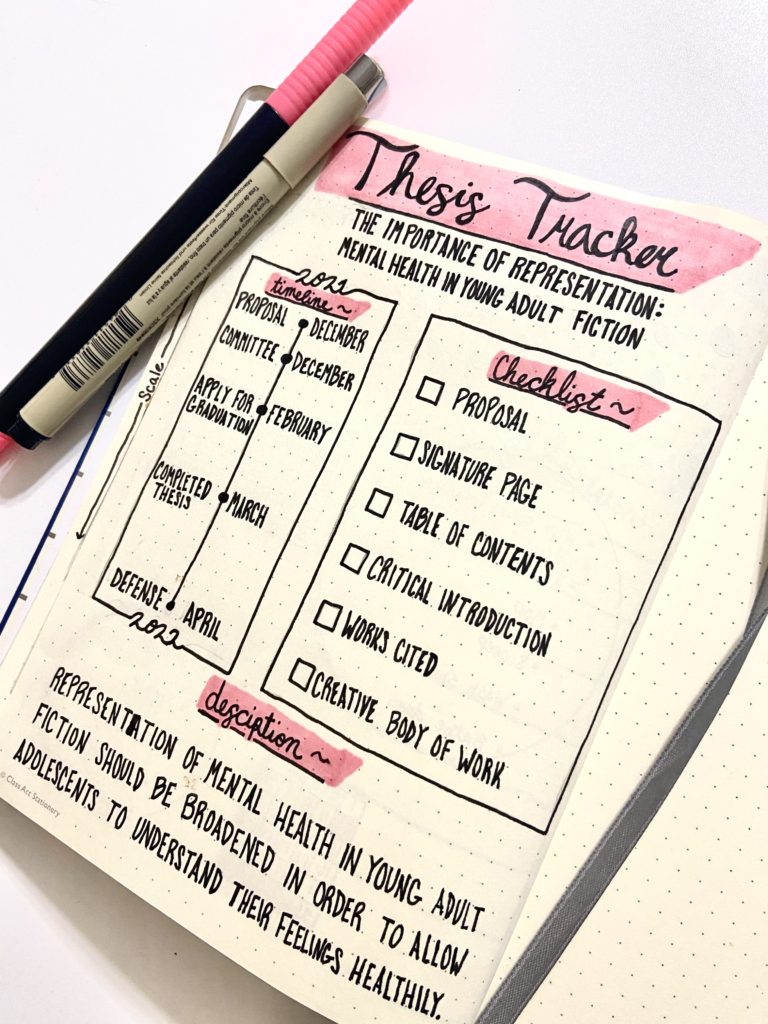 Thesis Tracker
THE IMPORTANCE OF REPRESENTATION:
MENTAL HEALTH IN YOUNG ADULT FICTION
2021
timeline ~
PROPOSAL DECEMBER
COMMITTEE DECEMBER
APPLY FOR
GRADUATION FEBRUARY
COMPLETED
THESIS MARCH
DEFENSE APRIL
2022
Checklist ~
PROPOSAL
SIGNATURE PAGE
TABLE OF CONTENTS
CRITICAL INTRODUCTION
WORKS CITED
CREATIVE BODY OF WORK
desciption ~
REPRESENTATION OF MENTAL HEALTH IN YOUNG ADULT
FICTION SHOULD BE BROADENED IN ORDER TO ALLOW
ADOLESCENTS TO UNDERSTAND THEIR FEELINGS HEALTHILY.
Scale
© Class Act Stationery